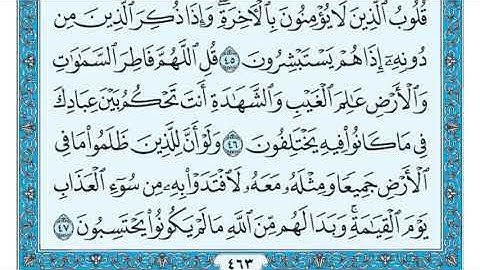 قُلُوبُ ٱلَّذِينَ لَا يُؤْمِنُونَ بِٱلْأَخِرَةِ ۖ وَإِذَا ذُكِرَ ٱلَّذِينَ مِن
دُونِهِۦٓ إِذَا هُمْ يَسْتَبْشِرُونَ ٤٥ قُلِ ٱللَّهُمَّ فَاطِرَ ٱلسَّمَٰوَٰتِ
وَٱلْأَرْضِ عَٰلِمَ ٱلْغَيْبِ وَٱلشَّهَٰدَةِ أَنتَ تَحْكُمُ بَيْنَ عِبَادِكَ
فِي مَا كَانُوا۟ فِيهِ يَخْتَلِفُونَ ٤٦ وَلَوْ أَنَّ لِلَّذِينَ ظَلَمُوا۟ مَا فِي
ٱلْأَرْضِ جَمِيعًا وَمِثْلَهُۥ مَعَهُۥ لَٱفْتَدَوْا۟ بِهِۦ مِن سُوٓءِ ٱلْعَذَابِ
يَوْمَ ٱلْقِيَٰمَةِ ۚ وَبَدَا لَهُم مِّنَ ٱللَّهِ مَا لَمْ يَكُونُوا۟ يَحْتَسِبُونَ ٤٧
٤٦٣